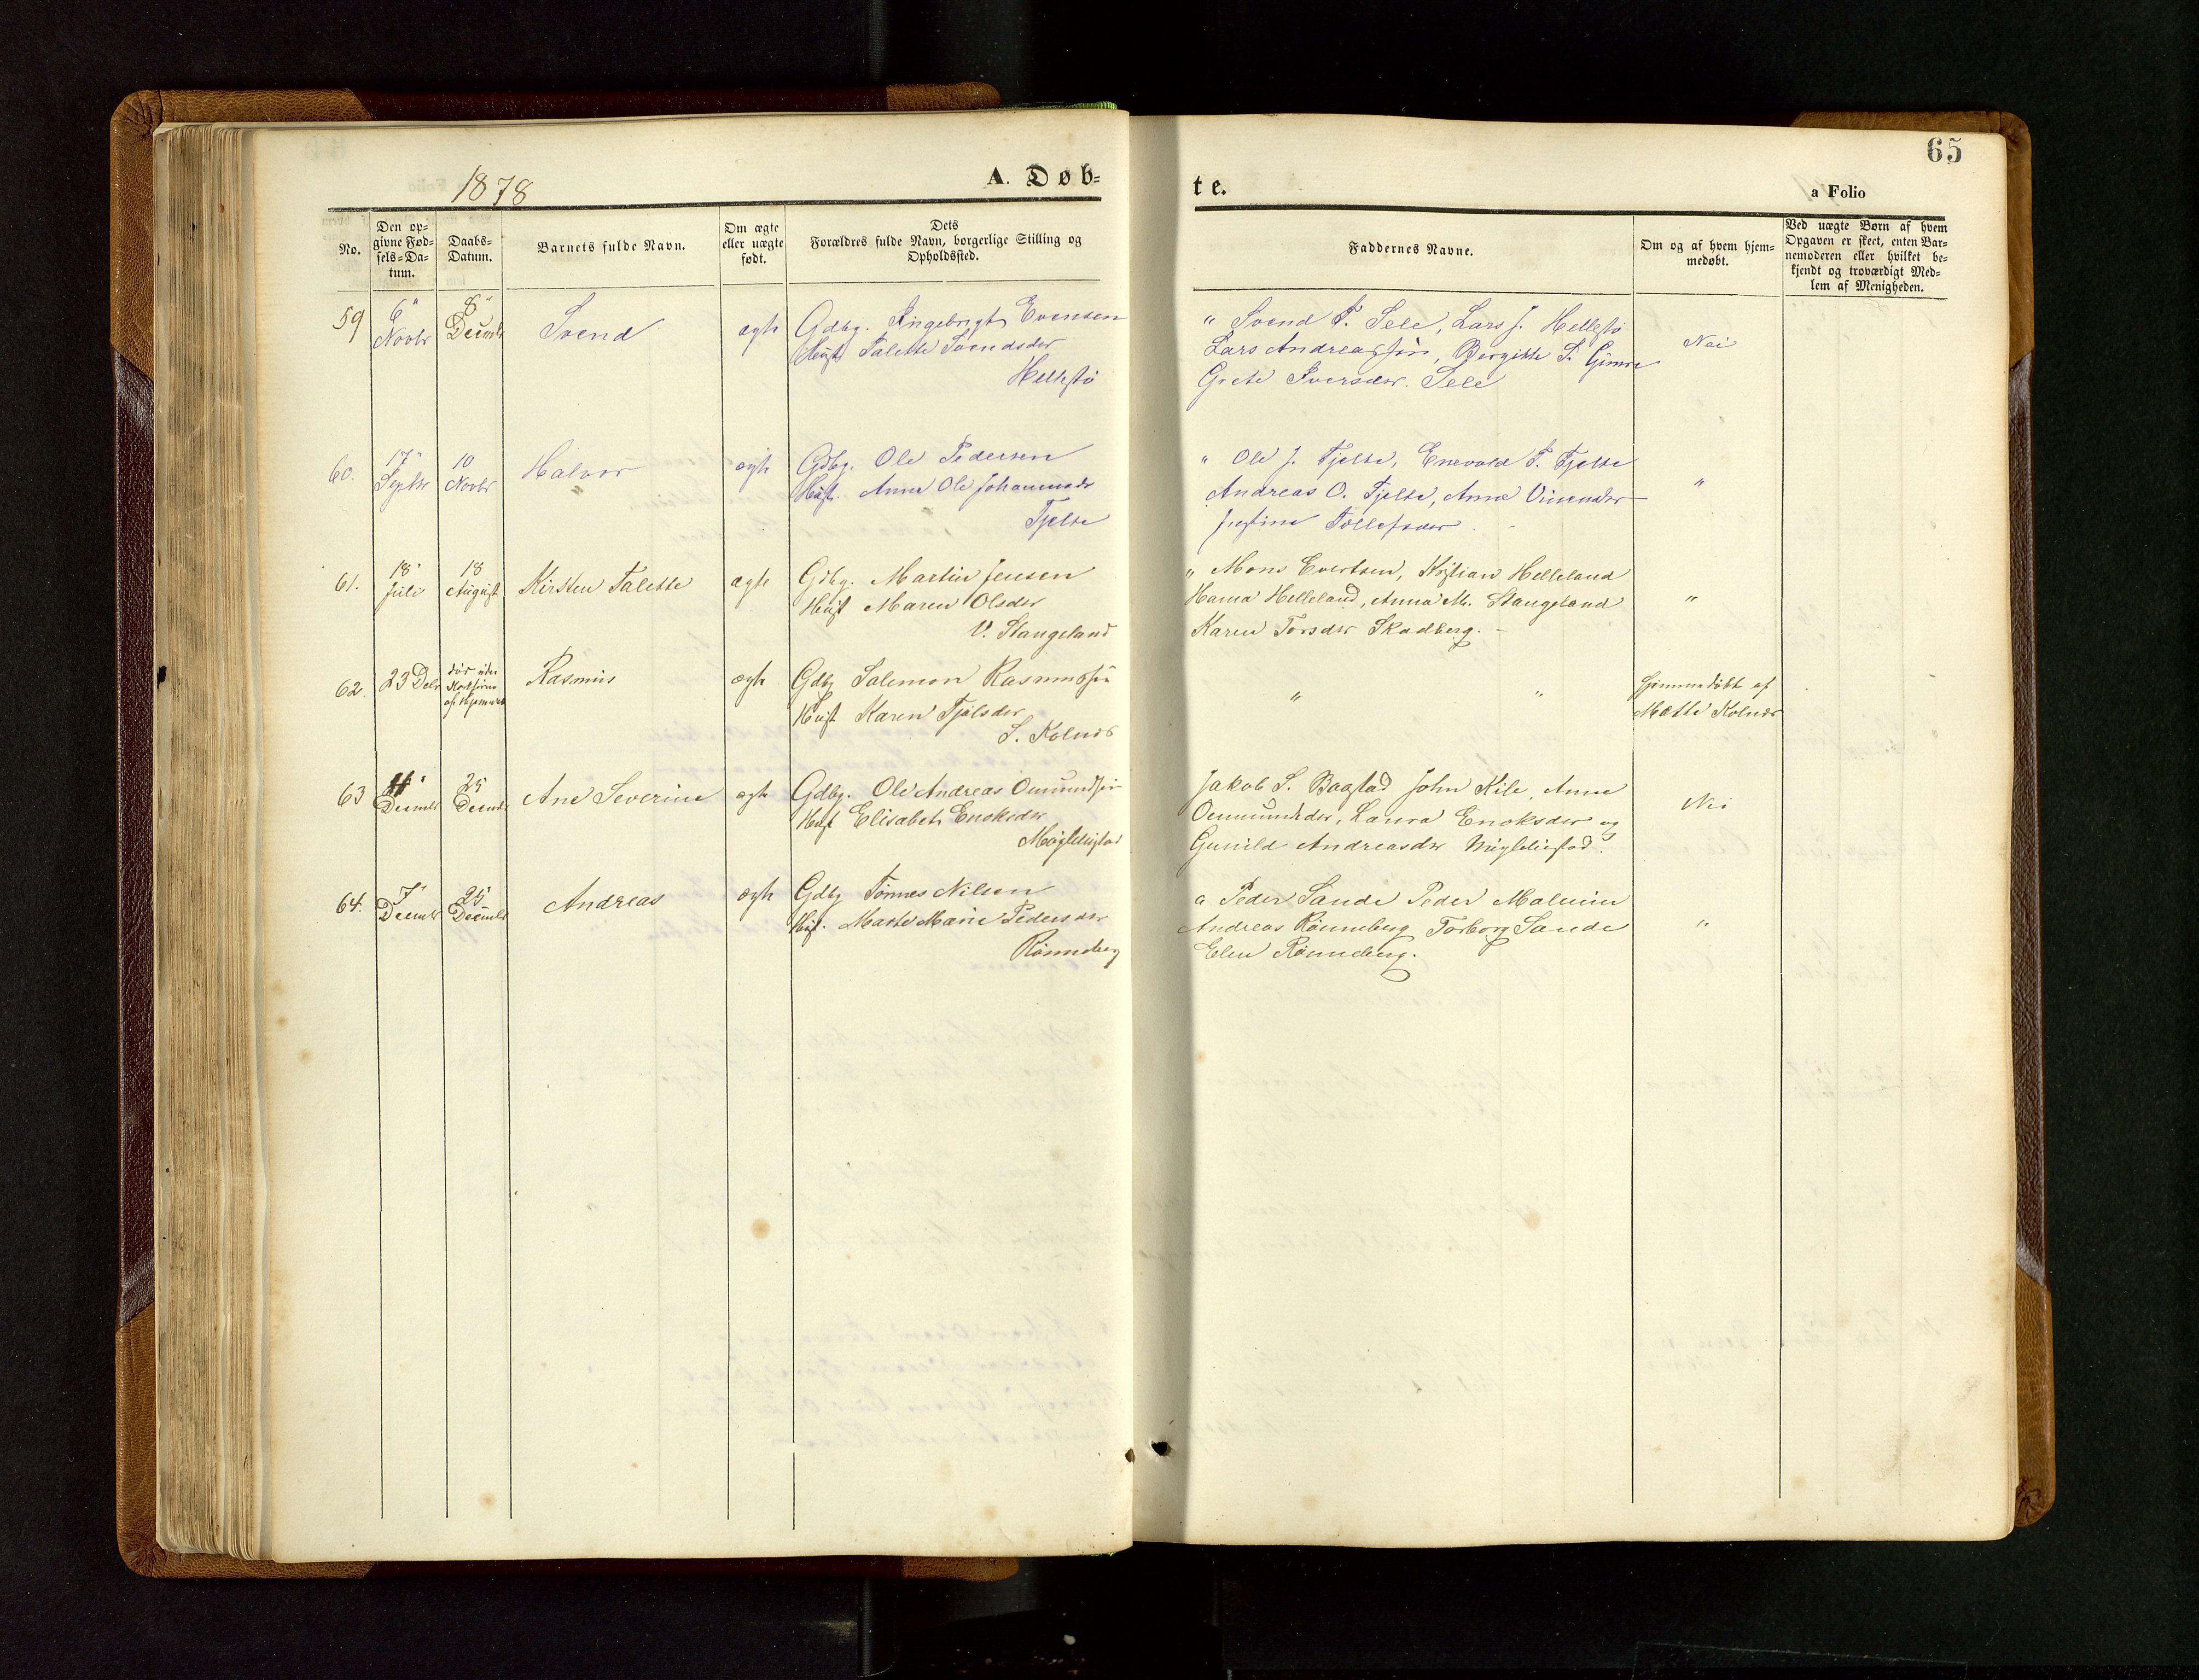 65
1878
A. Døb-
te.
a Folio
No.
Den op-
givne Fød-
sels-Da-
tum.
Daabs-
Datum.
Barnets fulde Navn.
Om ægte
eller uægte
født.
Dets
Forældres fulde Navn, borgerlige Stilling og
Opholdssted.
Faddernes Navne.
Om og af hvem hjem-
medøbt.
Ved uægte Børn af hvem
Opgaven er skeet, enten Bar-
nemoderen eller hvilket be-
kjendt og troværdigt Med-
lem af Menigheden.
59
6"
Novbr
8"
Decmbr
Svend
ægte
Gdbg. Ingebrigt Evensen
Hust Talette Svendsdtr
Hellestø
" Svend P. Sele, Lars J. Hellestø
Lars Andreassøn, Bergitte S. Gimre
Grete Iversdtr. Sele
Nei
60.
17"
Septbr
10
Novbr
Halvor
ægte
Gdbg. Ole Pedersen
Hust. Anne Ole Johannesdtr
Tjelte
" Ole J. Tjelte, Enevold P. Tjelte
Andreas O. Tjelte, Anne
Tollefsdtr.
"
61.
18"
Juli
18
August
Kirsten Talette
ægte
Gdbg. Martin Jensen
Hust Maren Olsdtr
V. Stangeland
" Mons Evertsen, Kristian Helleland
Hanna Helleland, Anna M. Stangeland
Karen Torsdtr Skadberg.
"
62.
23 Debr
døv uden
Stadfæstn
af Hjemmed
Rasmus
ægte
Gdbg Salemon Rasmussøn
Hust Karen Tjølsdtr
S. Kolnes
" "
Hjemmedøbt af
Mætte Kolnes
63
11"
Decmbr
25
Decmbr
Ane Severine
ægte
Gdbg. Ole Andreas Omundsøn
Hust Elisabet Enoksdtr
Jakob S. Bogstad John Kile, Anne
Ommundsdtr, Laura Enoksdtr og
Gunild Andreasdtr
Nei
64.
7"
Decmbr
25
Decmbr
Andreas
ægte
Gdbg Tønnes Nilsen
Hust. Marte Marie Pedersdtr
Rønneberg
a Peder Sande Peder
Andreas Rønneberg Torborg Sande
Elen Rønneberg.
"